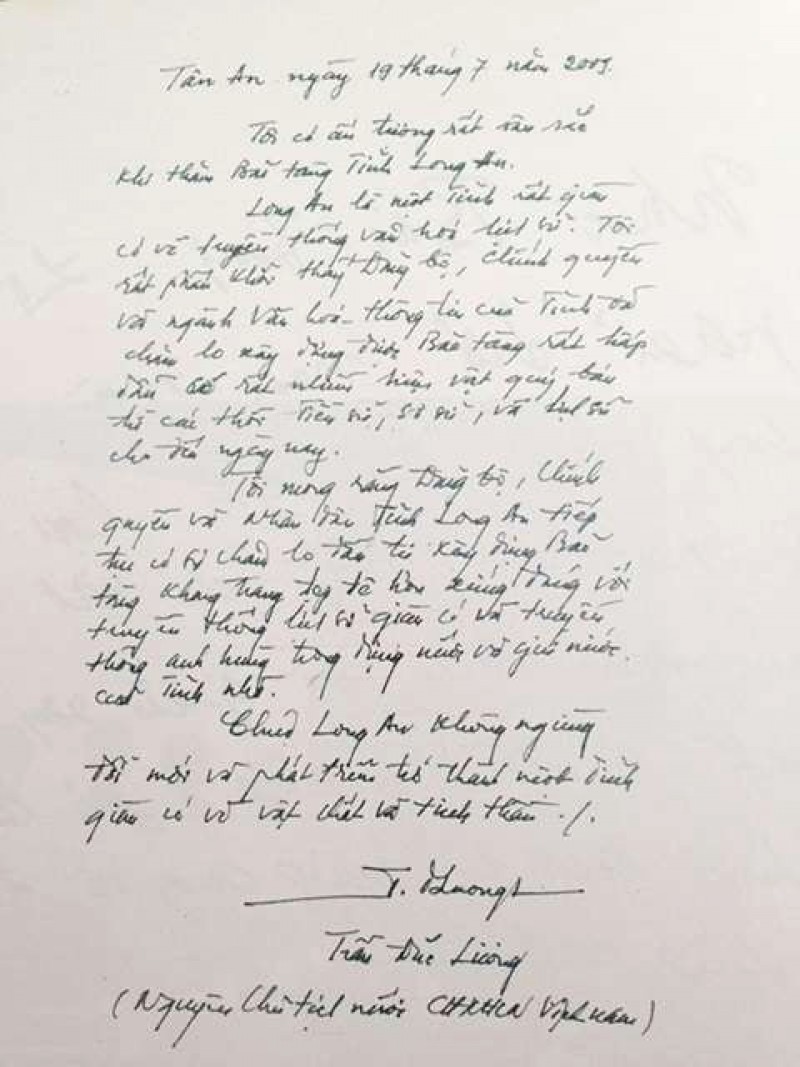 Tân An ngày 19 tháng 7 năm 2009.
Tôi có ấn tượng rất sâu sắc
khi thăm Bảo tàng Tỉnh Long An.
Long An là một Tỉnh rất giàu
có về truyền thống văn hoá lịch sử. Tôi
rất phấn khởi thấy Đảng bộ, chính quyền
và ngành Văn hoá - thông tin của Tỉnh đã
chăm lo xây dựng được Bảo tàng rất hấp
dẫn có rất nhiều hiện vật quý báu
từ các thời Tiền sử, sơ sử, và lịch sử
cho đến ngày nay.
Tôi mong rằng Đảng bộ, Chính
quyền và Nhân dân Tỉnh Long An tiếp
tục có sự chăm lo đầu tư xây dựng Bảo
tàng khang trang đẹp đẽ hơn xứng đáng với
truyền thống lịch sử giàu có và truyền
thống anh hùng trong dựng nước và giữ nước
của Tỉnh nhà.
Chúc Long An không ngừng
đổi mới và phát triển trở thành một Tỉnh
giàu có về vật chất và tinh thần ./.
T. Đluong
Trần Đức Lương
(Nguyên Chủ tịch nước CHXHCN Việt Nam)